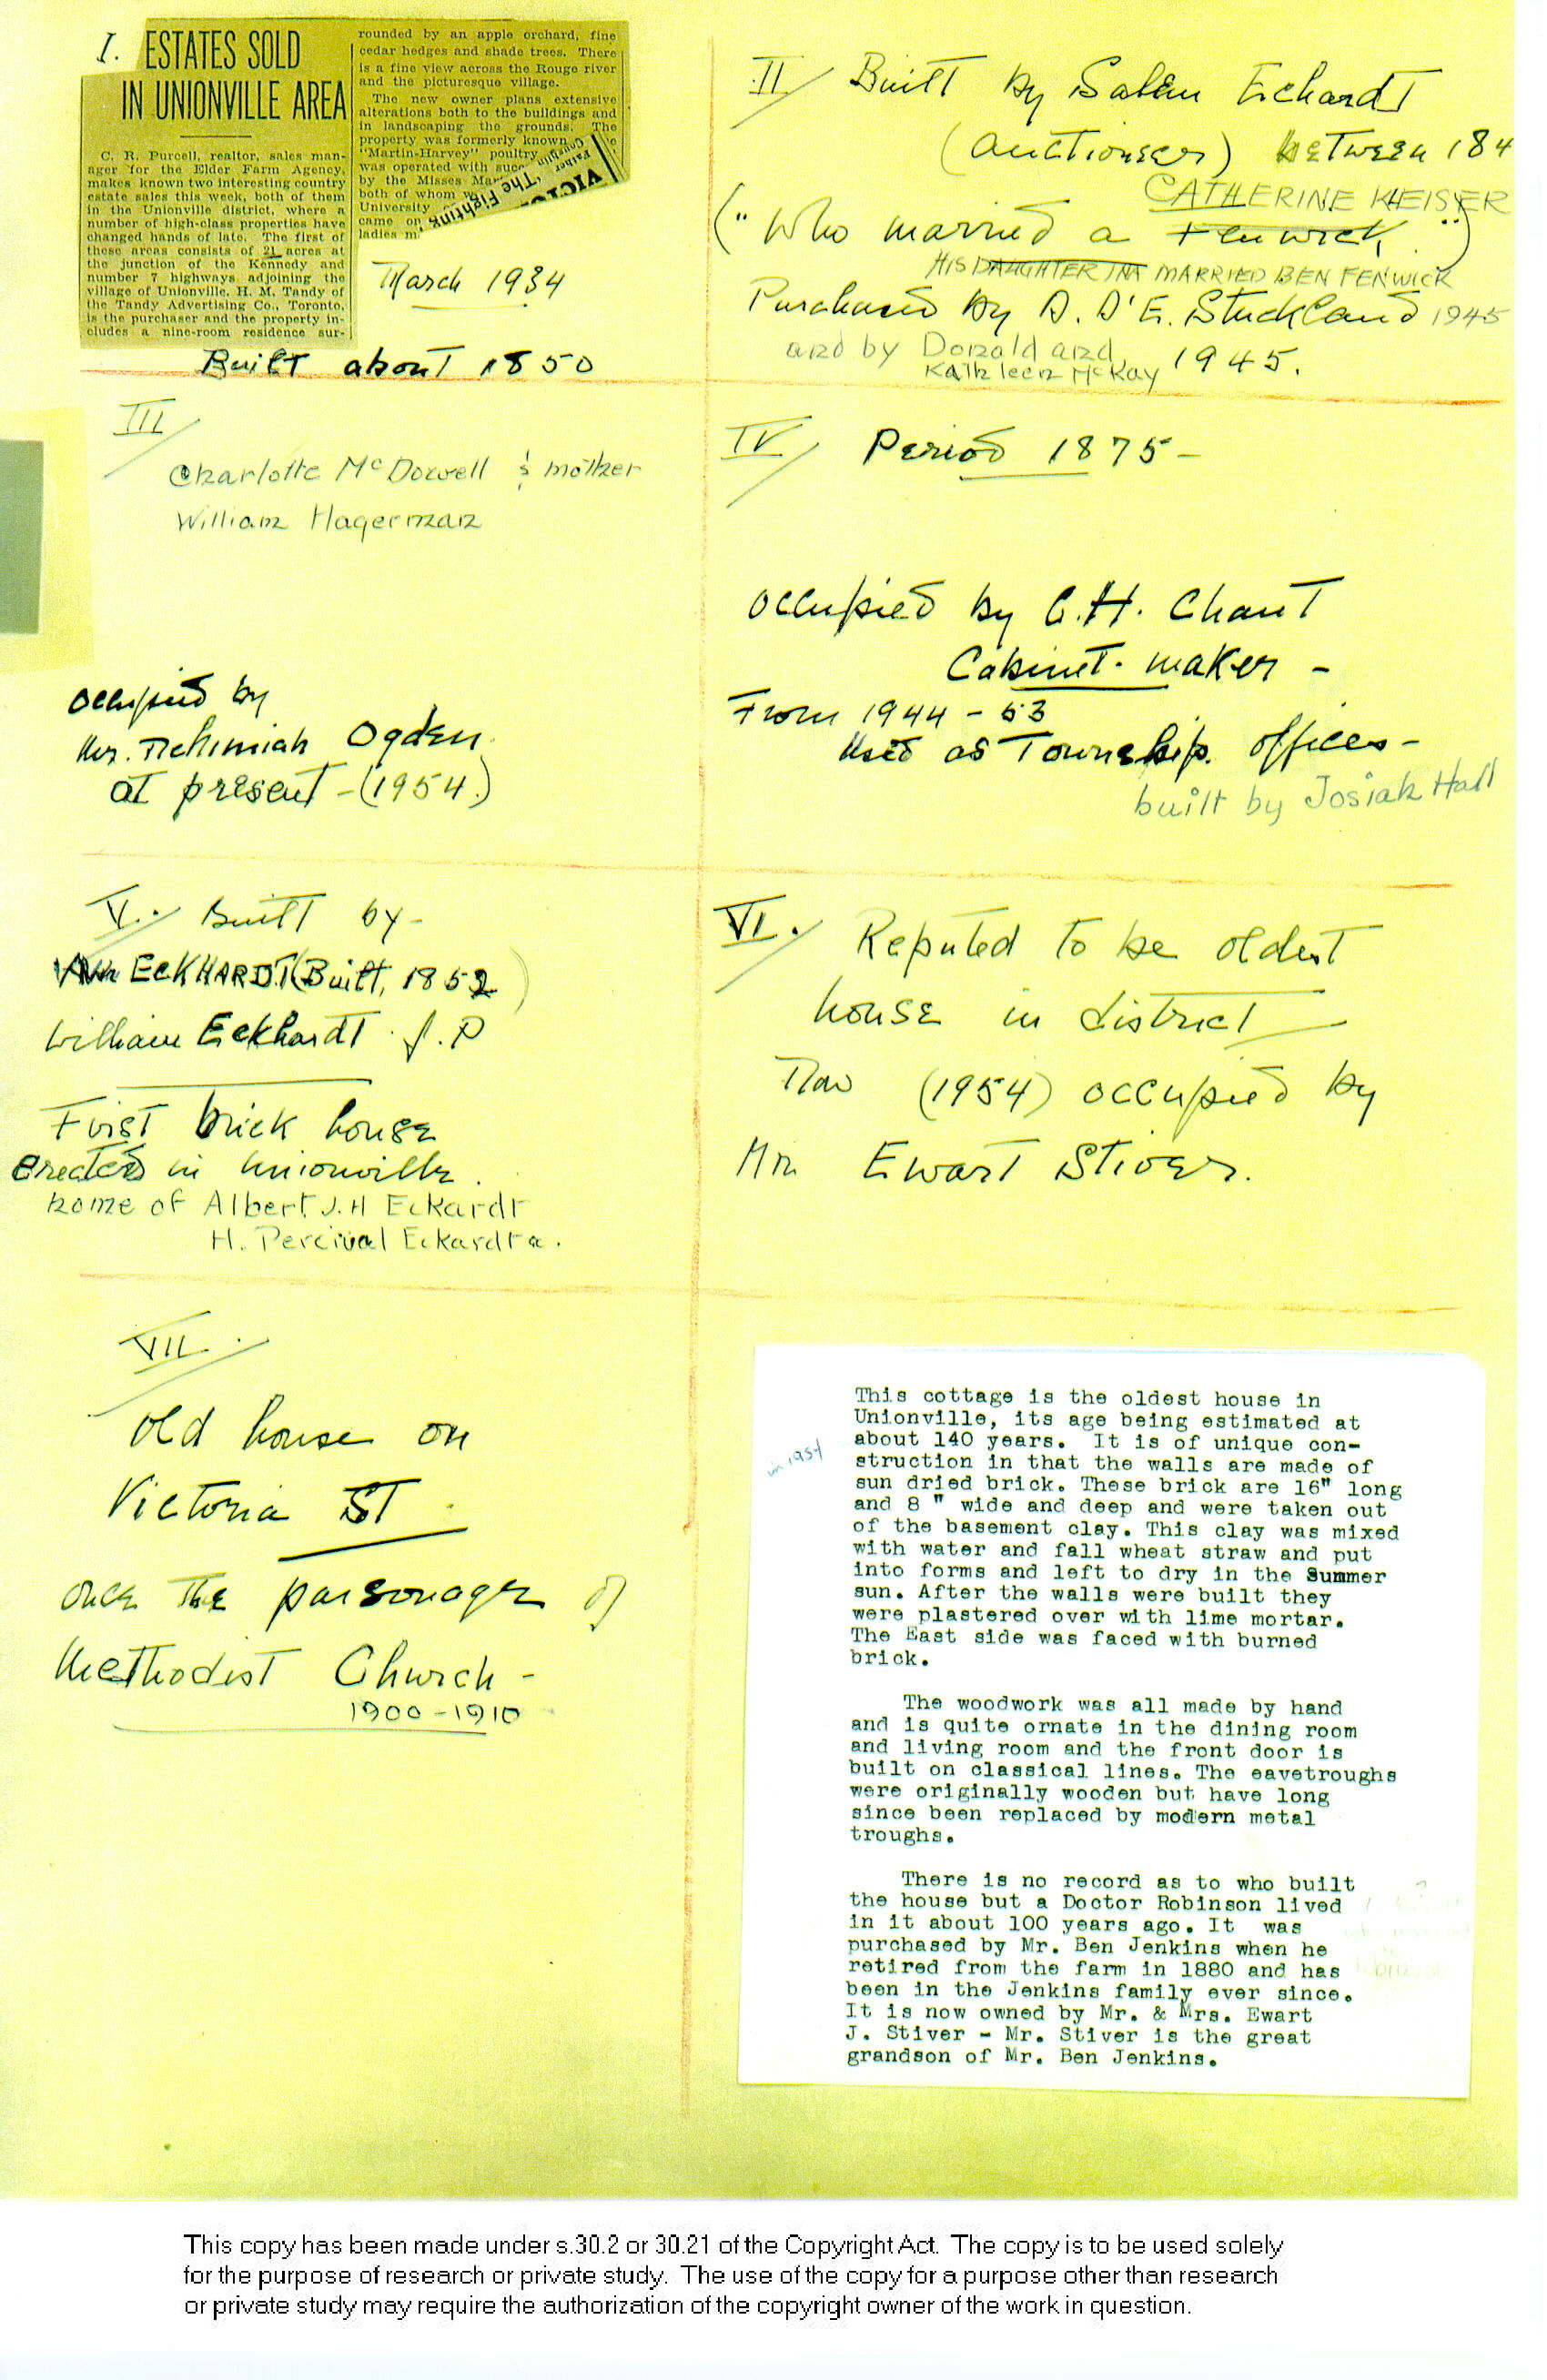 I. ESTATES SOLD
IN UNIONVILLE AREA
C. R. Purcell, realtor, sales man-
ager for the Elder Farm Agency,
makes known two interesting country
estate sales this week, both of them
in the Unionville district, where a
number of high-class properties have
changed hands of late. The first of
these areas consists of 21 acres at
the junction of the Kennedy and
number 7 highways adjoining the
village of Unionville. H. M. Tandy of
the Tandy Advertising Co., Toronto,
is the purchaser and the property in-
cludes a nine-room residence sur-
rounded by an apple orchard, fine
cedar hedges and shade trees. There
is a fine view across the Rouge river
and the picturesque village.
The new owner plans extensive
alterations both to the buildings and
in landscaping the grounds. The
property was formerly known
"Martin-Harvey" poultry
was operated with
by the Misses
both of whom
University
came on
ladies
Father Coughlin
"The Fighting
March 1934
Built about 1850
II Built by Salem Eckardt
(auctioneer) between 184
CATHERINE KHEISER
("Who married a Fenwick")
HIS DAUGHTER INA MARRIED BEN FENWICK
Purchased by A. D'E. Stuckland 1945
and by Donald and 1945.
Kathleen McKay
III
Charlotte McDowell & mother
William Hagerman
occupied by
Mrs. Nehimiah Ogden
at present - (1954.)
IV Period 1875-
occupied by C.H. Chant
Cabinet-maker -
From 1944 - 53
Used as Township offices -
built by Josiah Hall
V. Built by-
Wm ECKHARDT (Built, 1852)
William Eckhardt J.P
First brick house
erected in Unionville.
home of Albert J.H Eckardt
H. Percival Eckardt
VI. Reputed to be oldest
house in district
Now (1954) occupied by
Mr. Ewart Stiver.
VII.
old house on
Victoria ST
once The parsonage of
Methodist Church -
1900 - 1910
in 1954
This cottage is the oldest house in
Unionville, its age being estimated at
about 140 years. It is of unique con-
struction in that the walls are made of
sun dried brick. These brick are 16" long
and 8 " wide and deep and were taken out
of the basement clay. This clay was mixed
with water and fall wheat straw and put
into forms and left to dry in the Summer
sun. After the walls were built they
were plastered over with lime mortar.
The East side was faced with burned
brick.
The woodwork was all made by hand
and is quite ornate in the dining room
and living room and the front door is
built on classical lines. The eavetroughs
were originally wooden but have long
since been replaced by modern metal
troughs.
There is no record as to who built
the house but a Doctor Robinson lived
in it about 100 years ago. It was
purchased by Mr. Ben Jenkins when he
retired from the farm in 1880 and has
been in the Jenkins family ever since.
It is now owned by Mr. & Mrs. Ewart
J. Stiver - Mr. Stiver is the great
grandson of Mr. Ben Jenkins.
This copy has been made under s.30.2 or 30.21 of the Copyright Act. The copy is to be used solely
for the purpose of research or private study. The use of the copy for a purpose other than research
or private study may require the authorization of the copyright owner of the work in question.